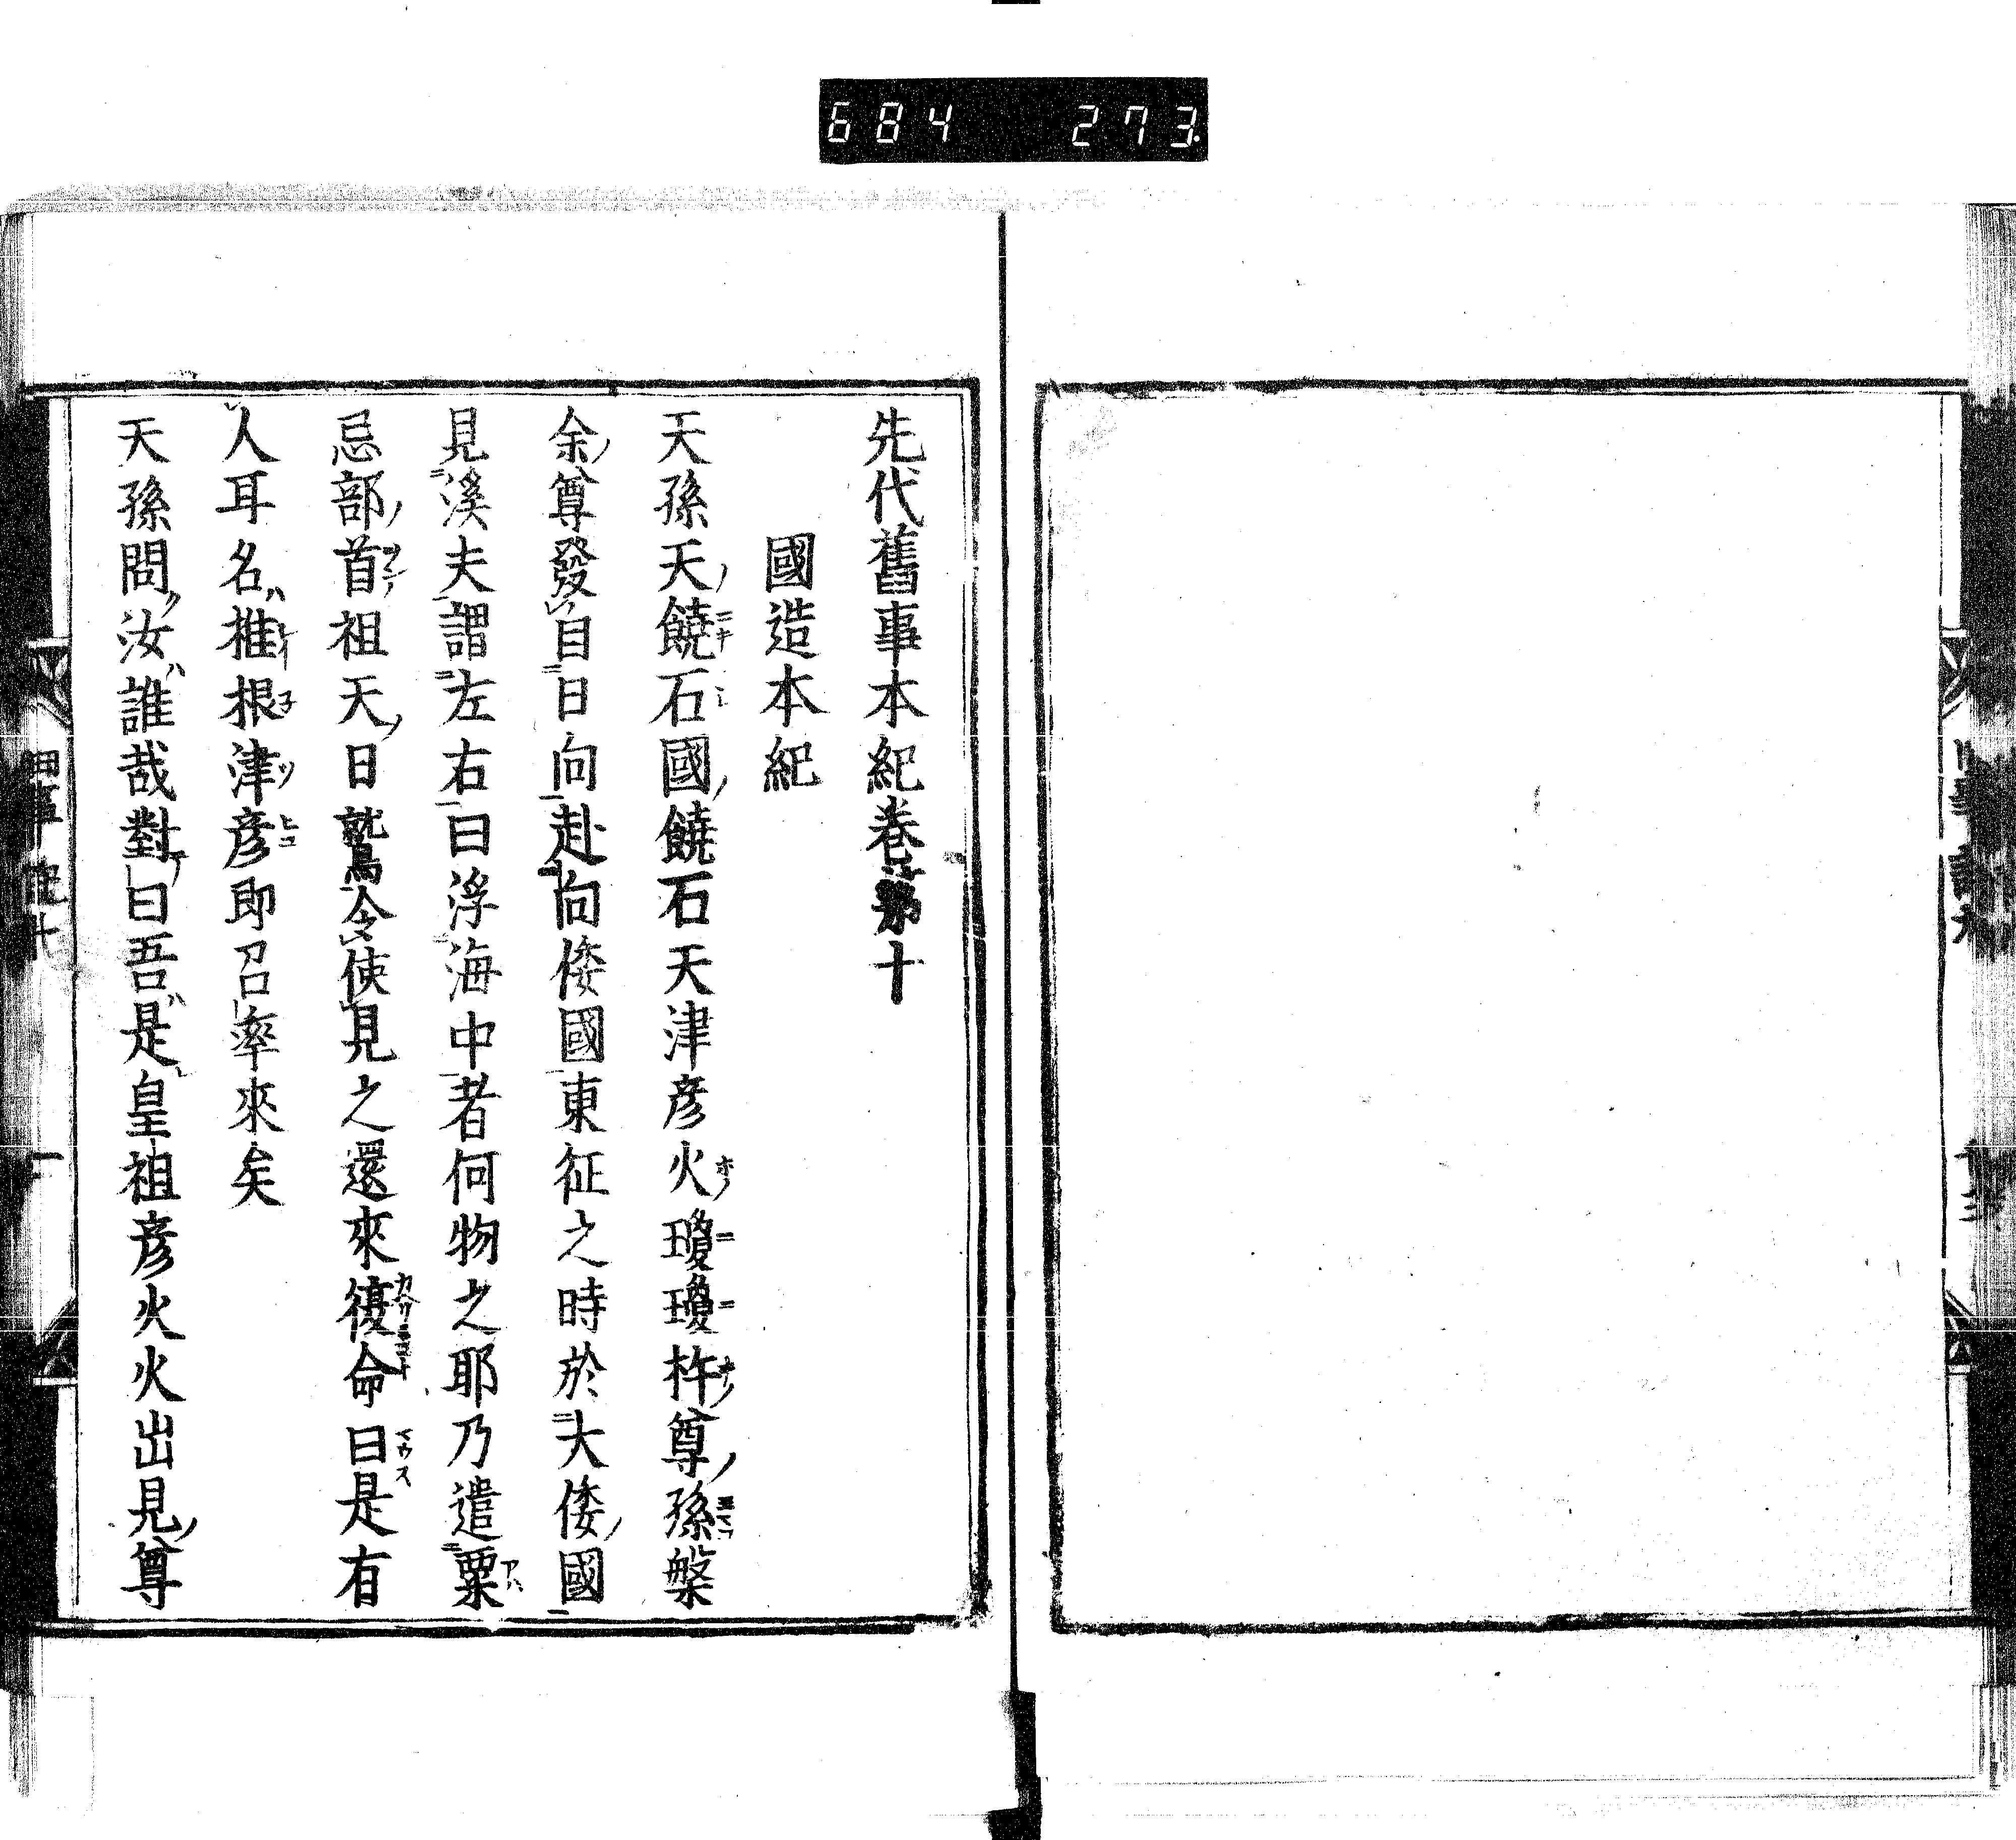 684 273
先代舊事本紀卷第十
國造本紀
天孫天饒石國饒石天津彦火瓊瓊杵尊孫磐
余尊發自日向赴向倭國東征之時於大倭國
見溪夫謂左右曰浮海中者何物之耶乃遣粟
忌部首祖天日鷲命使見之還來復命曰是有
人耳名椎根津彦即召率來矣
天孫問汝誰哉對曰吾是皇祖彦火火出見尊